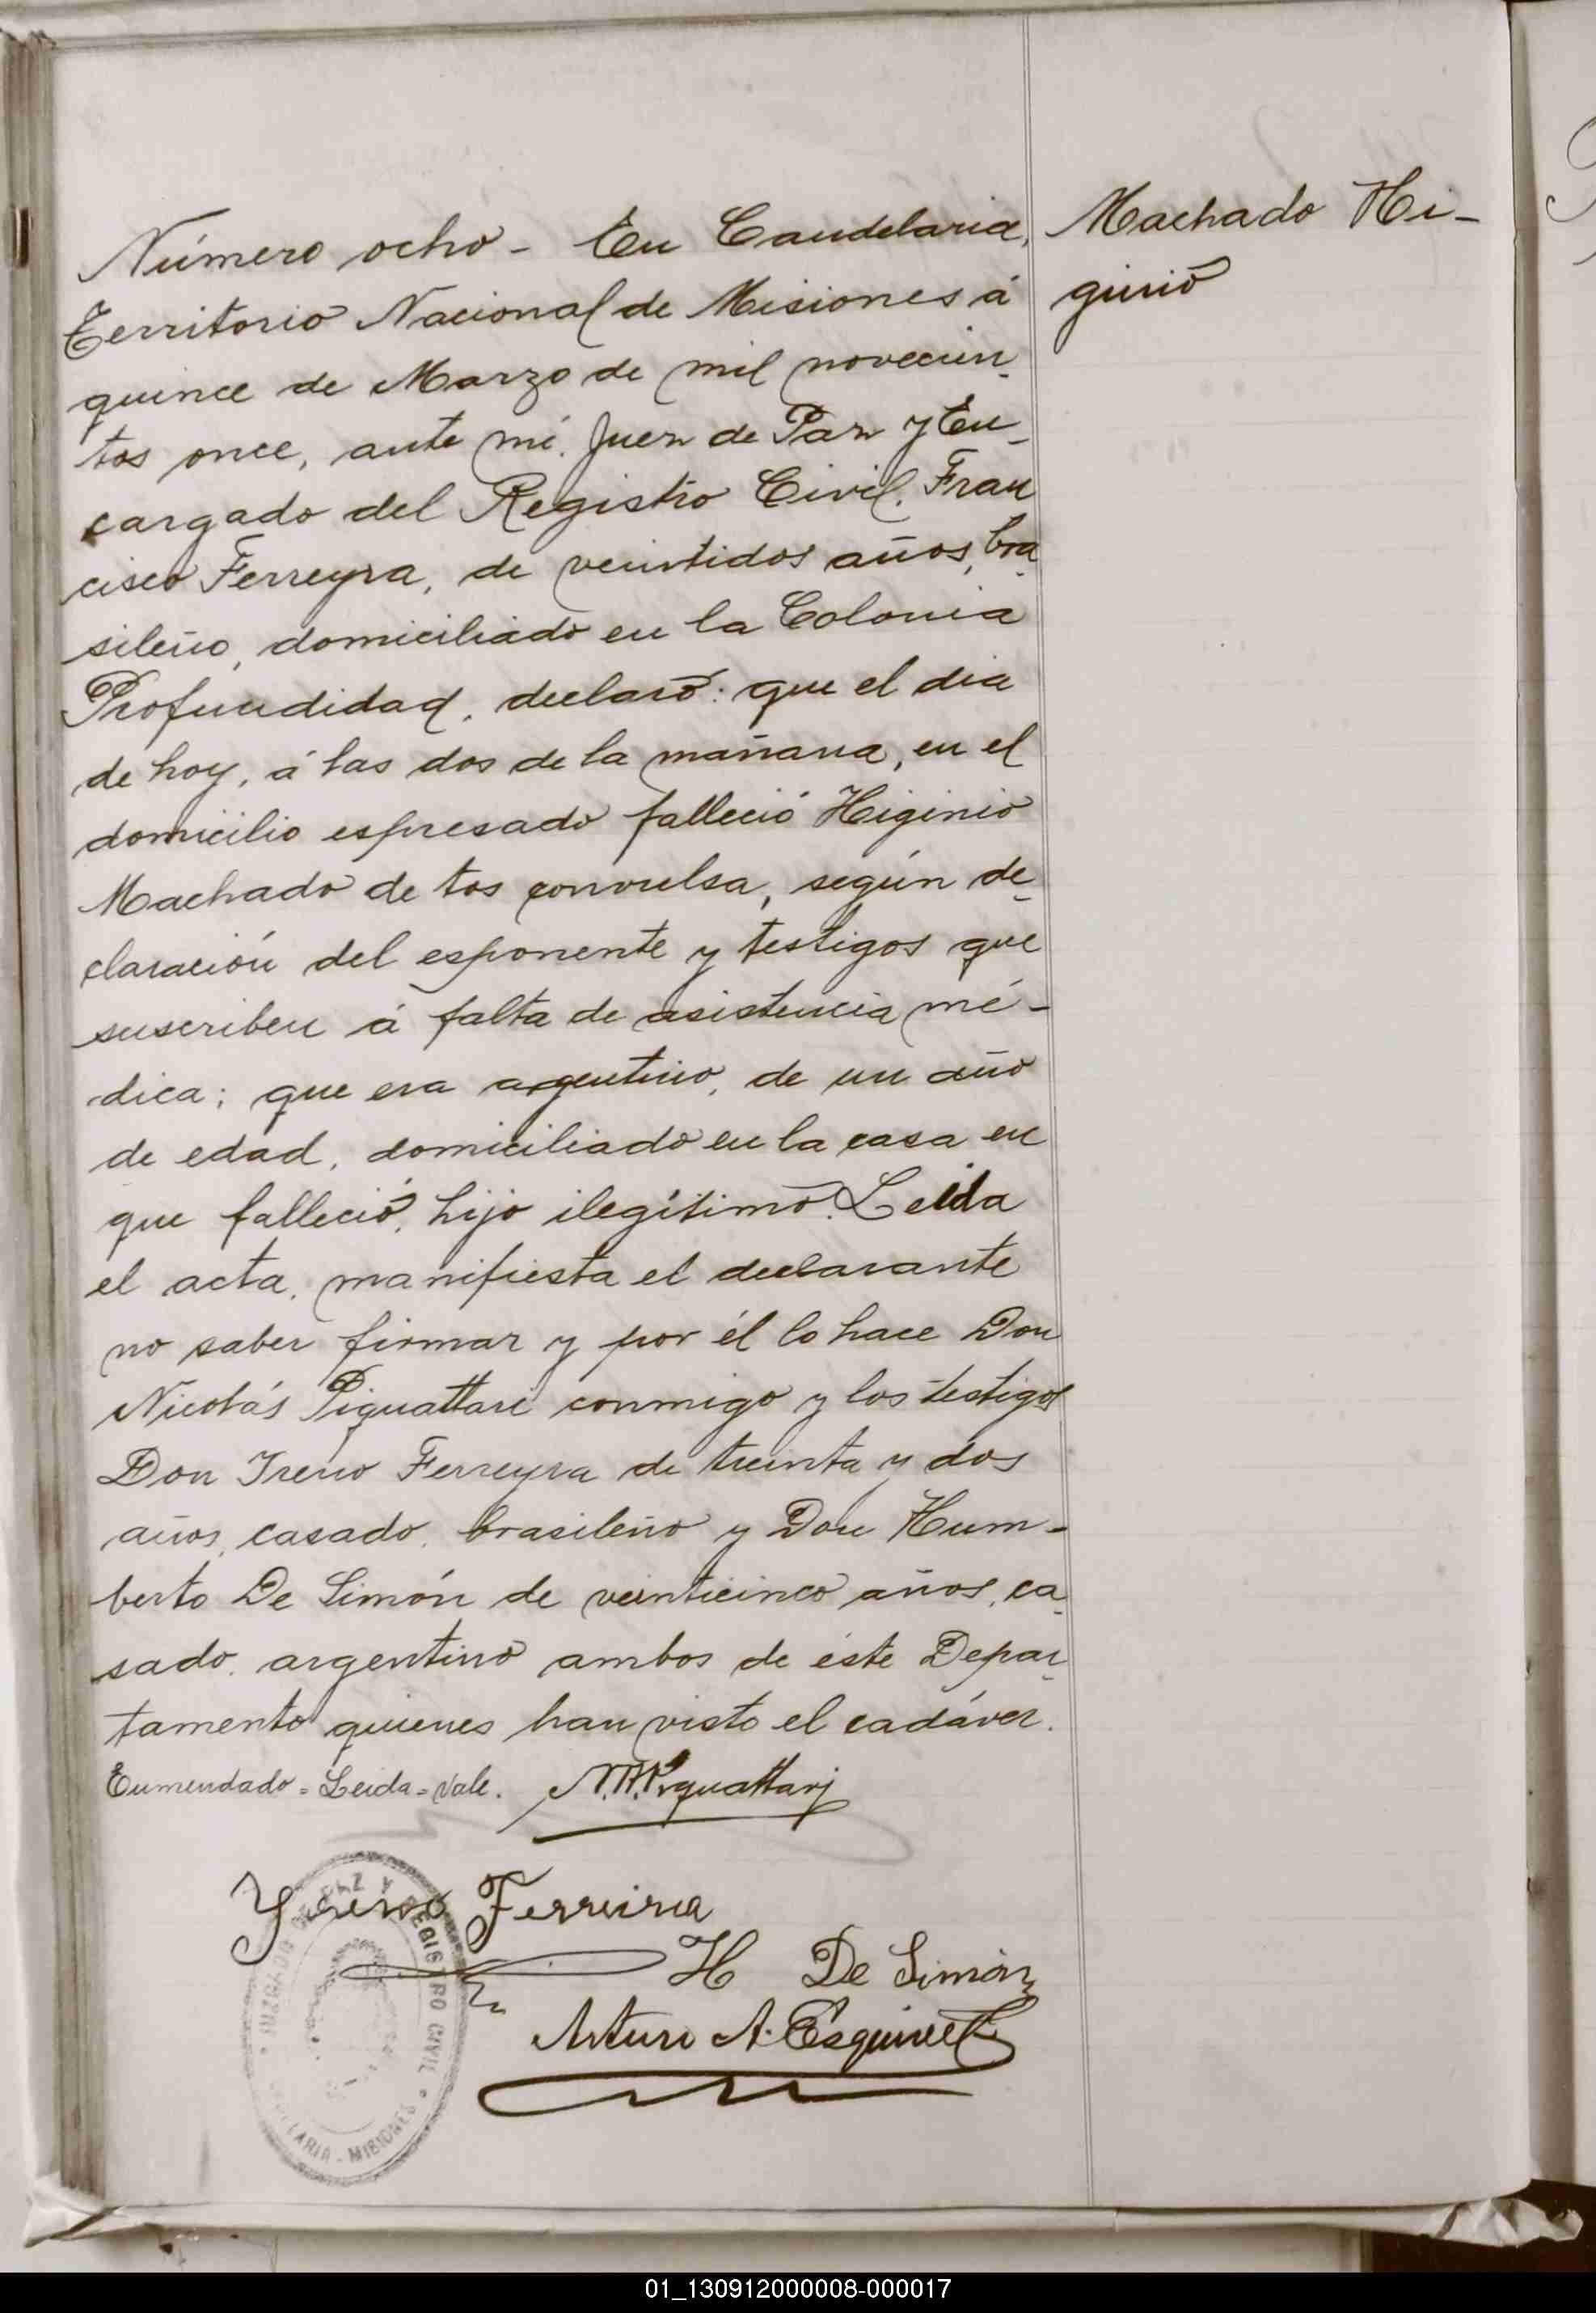 Número ocho - En Candelaria,
Territorio Nacional de Misiones á
quince de Marzo de mil novecien-
tos once, ante mí. Juez de Paz y En-
cargado del Registro Civil. Fran
cisco Ferreyra, de veintidos años, bra
sileño, domiciliado en la Colonia
Profundidad, declaró: que el dia
de hoy, á las dos de la mañana, en el
domicilio espresado falleció Higinio
Machado de tos convulsa, según de-
claración del esponente y testigos que
suscriben á falta de asistencia mé-
dica; que era argentino, de un año
de edad, domiciliado en la casa en
que falleció, hijo ilegítimo. Leida
el acta, manifiesta el declarante
no saber firmar y por él lo hace Don
Nicolás Piguattari conmigo y los testigos
Don Ireno Ferreyra de treinta y dos
años, casado, brasileño y Don Hum-
berto De Simón de veinticinco años, ca-
sado, argentino ambos de éste Depar-
tamento quienes han visto el cadáver.
Enmendado = Leida = Vale. Piguattari
Yreno Ferreira
H De Simón
Arturo A. Esquivel
Machado Hi-
ginio
DE PAZ Y REGISTRO CIVIL
MISIONES
01_130912000008-000017